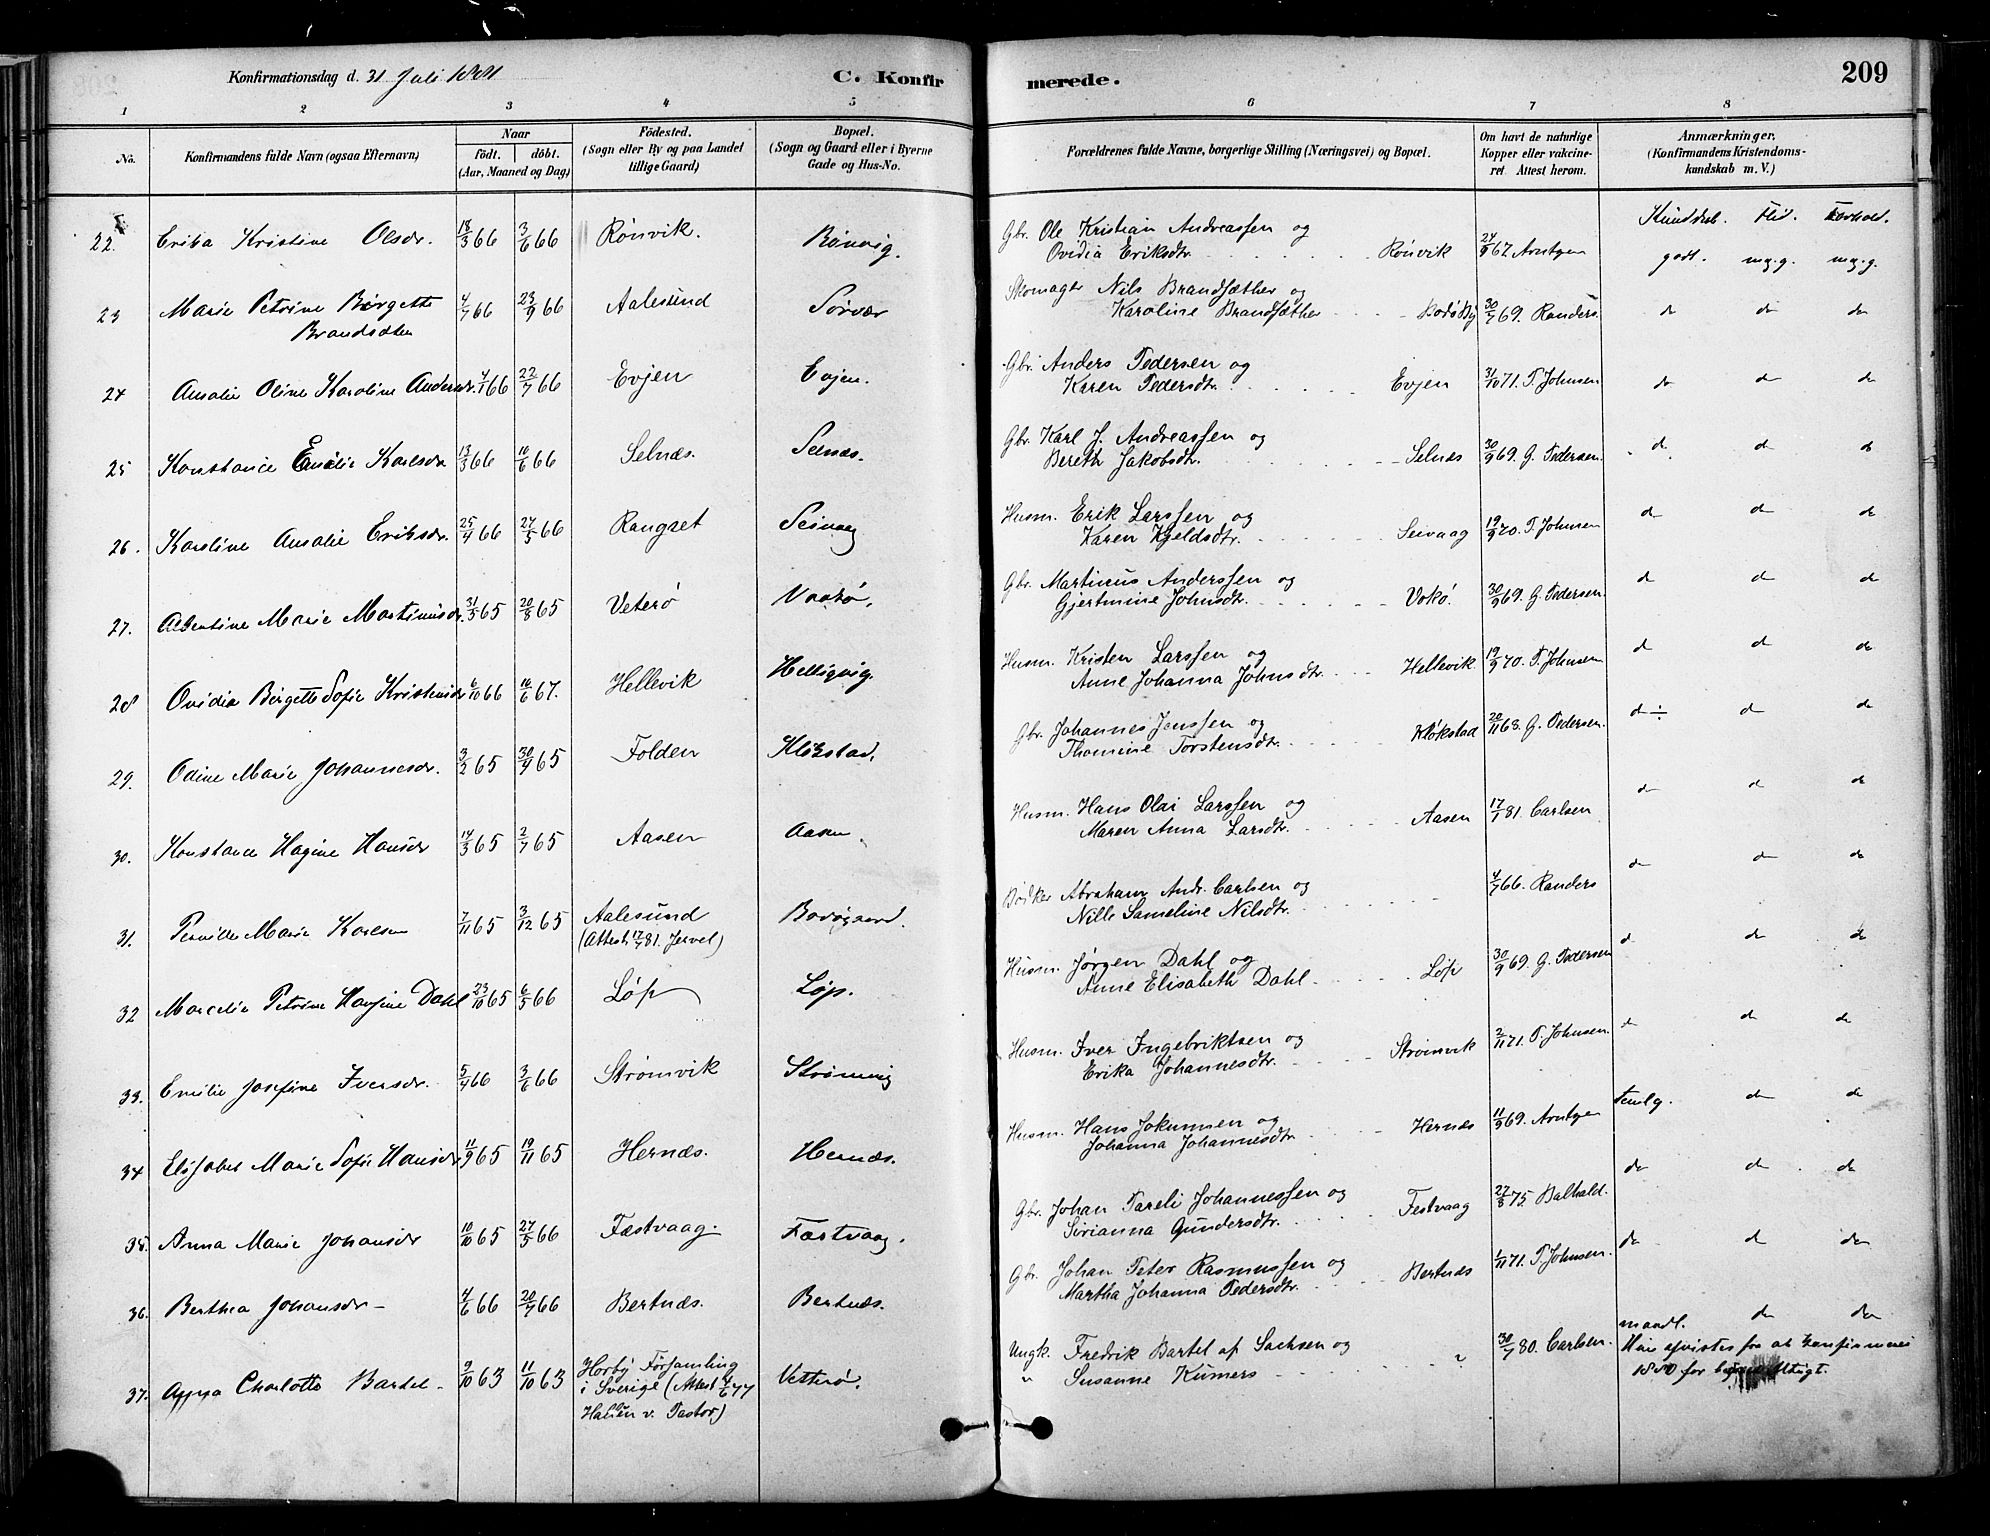 Konfirmationsdag d. 31 Juli 1881
C. Konfir
merede.
209
1 2 3 4 5 6 7 8
No.
Konfirmandens fulde Navn (ogsaa Efternavn)
Naar
födt. döbt.
(Aar, Maaned og Dag)
Födested.
(Sogn eller By og paa Landet
tillige Gaard)
Bopæl.
(Sogn og Gaard eller i Byerne
Gade og Hus-No.
Forældrenes fulde Navne, borgerlige Stilling (Næringsvei) og Bopæl.
Om havt de naturlige
Kopper eller vakcine-
ret. Attest herom.
Anmærkninger.
(Konfirmandens Kristendoms-
kundskab m. V.)
Kundsk. Flid. Forhold.
22. Erika Kristine Olsdr. 18/3 66 3/6 66 Rönvik. Rönvig. Gbr. Ole Kristian Andreassen og
Ovidia Eriksdtr. Rönvik 24/9 67 Arntzen godt. mg.g. mg.g.
23 Marie Petrine Birgette 4/7 66 23/9 66 Aalesund Sörvær Skomager Nils Brandsæther og
Brandsæther Karoline Brandsæther Bodö By 30/7 69. Randers. do do do
24 Amalie Oline Karoline Andersdr. 4/1 66 22/7 66 Evjen Evjen. Gbr. Anders Pedersen og
Karen Pedersdtr. Evjen 31/10 71. P. Johnsen do do do
25 Konstance Emilie Karlsdr 13/3 66 10/6 66 Selnæs. Selnæs. Gbr. Karl J. Andreassen og
Bereth Jakobsdtr. Selnæs 30/9 69. G. Pedersen. d d d
26. Karoline Amalie Eriksdr. 25/4 66 27/5 66 Rangsæt Seivaag Husm. Erik Larssen og
Karen Kjeldsdtr. Seivaag 19/9 70. P. Johnsen d d d
27. Albertine Marie Martinusdr. 31/5 65 20/8 65 Veterö Vaakö. Gbr. Martinus Anderssen og
Gjertmine Johnsdtr. Vokö. 30/9 69. G. Pedersen. d d d
28 Ovidia Birgette Sofie Kristensdr 6/10 66 16/6 67. Hellevik Helligvig. Husm. Kristen Larssen og
Anne Johanna Johnsdtr. Hellevik 19/9 70. P. Johnsen d d do
29. Odine Marie Johannesdr. 3/2 65 30/4 65 Folden Klökstad. Gbr. Johannes Jenssen og
Thomine Torstensdtr. Kløkstad 20/11 68. G. Pedersen. d ÷ d d
30. Konstance Hagine Hansdr 14/3 65 2/7 65 Aasen Aasen. Husm. Hans Olai Larssen og
Maren Anna Larsdtr. Aasen 17/7 81. Carlsen d d d
31. Pernille Marie Karlsen 7/11 65 3/12 65 Aalesund Bodøgaard. Bödker Abraham Andr. Carlsen og
(Attest. 17/7 81. Jervel) Nille Sameline Nilsdtr. 4/7 66. Randers d d d
32 Marcelie Petrine Hansine Dahl 23/10 65 6/5 66 Løp Løp. Husm. Jørgen Dahl og
Anne Elisabeth Dahl. Løp 30/9 69. G. Pedersen d d d
33. Emilie Josefine Iversdr. 5/4 66 3/6 66 Strømvik Strömvig Husm. Iver Ingebriktsen og
Erika Johannesdtr. Strömvik 2/11 71. P. Johnsen. d d d
34 Elisabet Marie Sofie Hansdr 11/9 65 19/11 65 Hernæs. Hernæs. Husm. Hans Jokumsen og
Johanna Johannesdtr. Hernæs 11/9 69. Arntzen temlg. do do
35. Anna Marie Johansdr 10/10 65 27/5 66 Fæstvaag. Fæstvaag. Gbr. Johan Pareli Johannessen og
Sirianna Gundersdtr. Festvaag 27/8 75. Balhald. do do do
36. Berthea Johansdr 4/6 66 20/7 66 Bertnæs. Bertnæs. Gbr. Johan Peter Rasmussen og
Martha Johanna Pedersdtr. Bertnæs 1/11 71. P. Johnsen. do d do
37. Anna Charlotte Bartel 9/10 63 11/10 63 Horby Församling Vetterö. Ungk. Fredrik Bartel af Sachsen og
i Sverige (Attest 4/6 77 " Susanne Kümers " 30/7 80. Carlsen. maadl. do do
Hansen v. Pastor) Hun afvistes fra at konfirmeres
1880 for